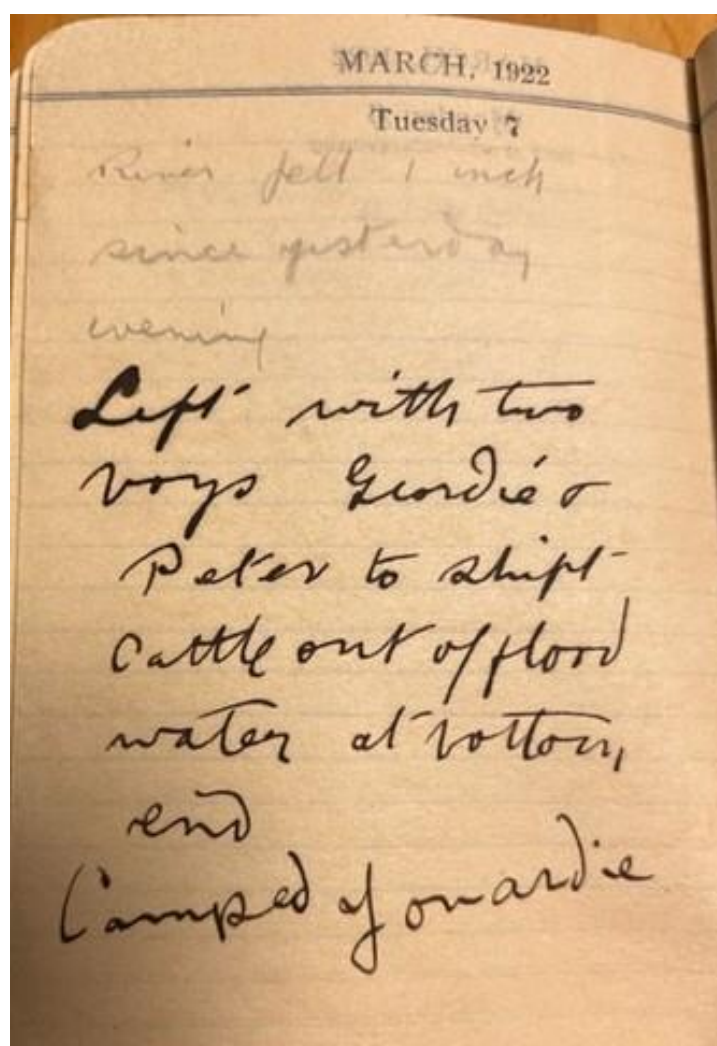 MARCH, 1922
Tuesday 7
River fell 1 inch
since yesterday
evening
Left with two
boys Geordie &
Peter to shift
cattle out of flood
water at bottom
end
Camped at